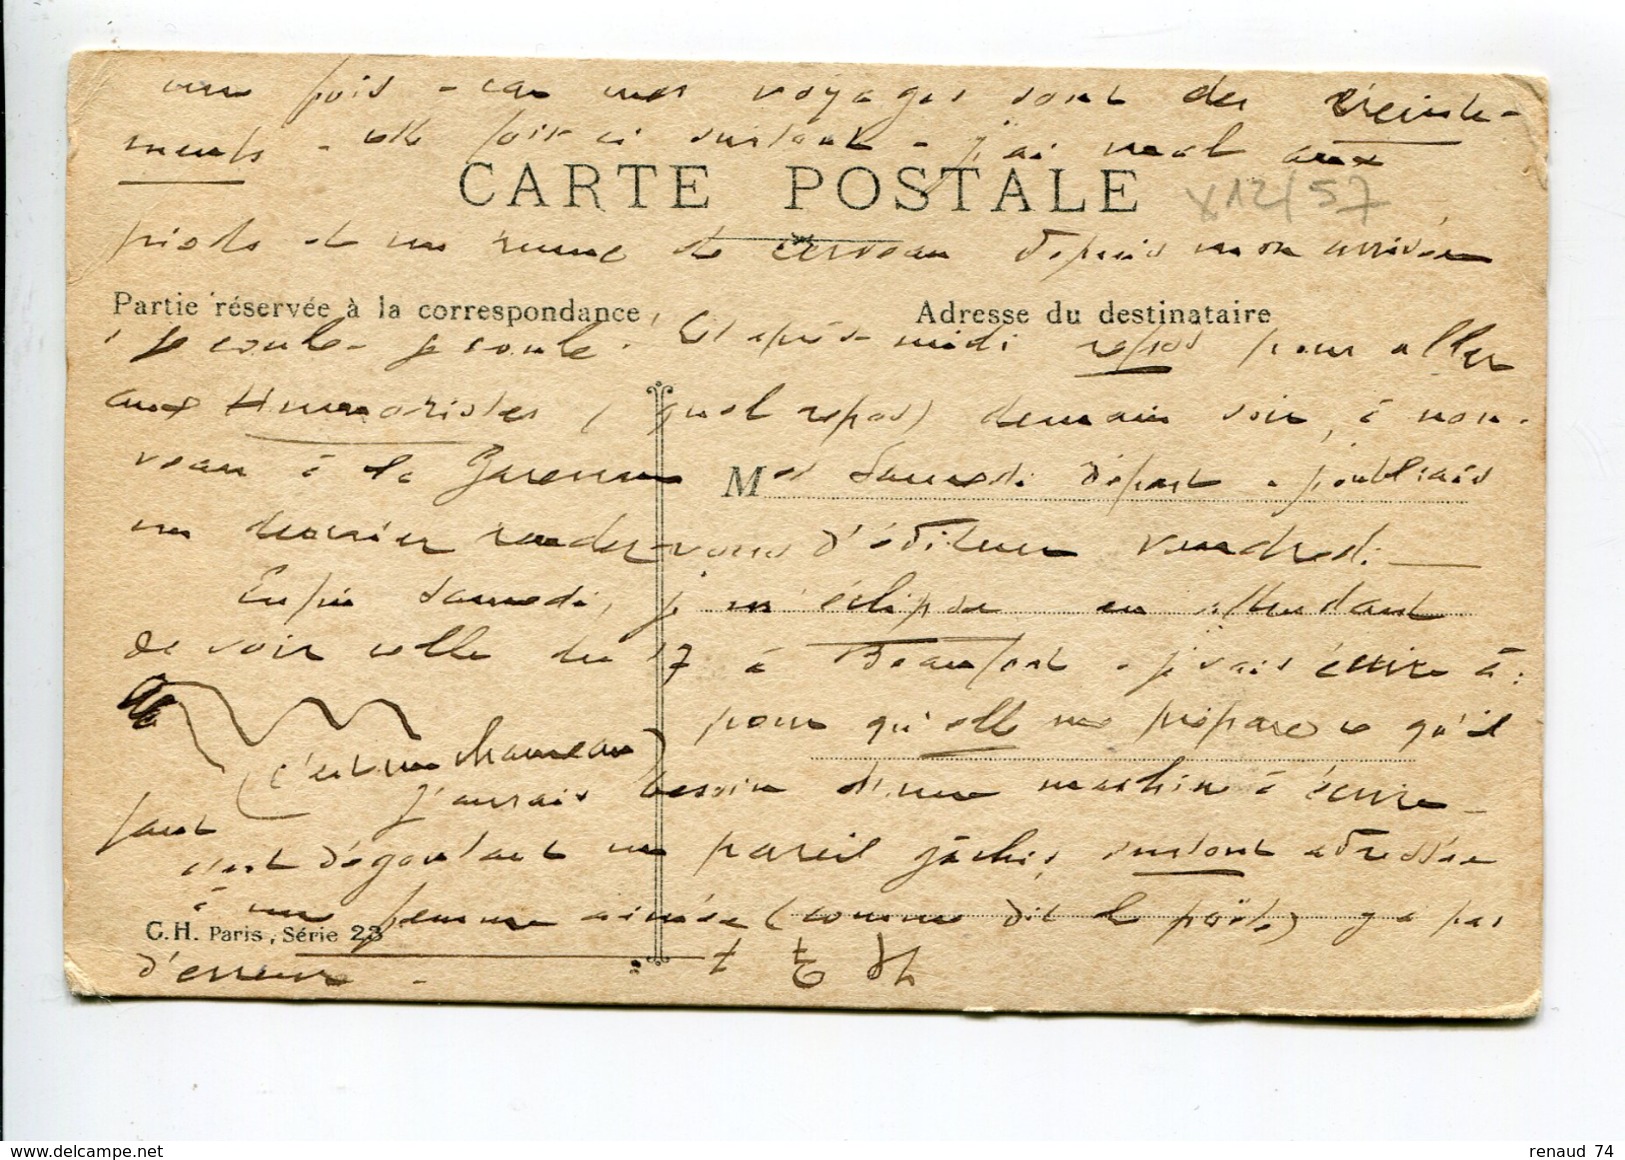 une fois - car mes voyages sont des éreinte-
ments - cette fois ci surtout - j'ai mal aux
CARTE POSTALE
X12/57
pieds et un rhume de cerveau depuis mon arrivée
Partie réservée à la correspondance
Adresse du destinataire
! je coule - je coule ! Cet après-midi repos pour aller
aux Humoristes (quel repos) demain soir, à nou-
veau à la Garenne
M
Samedi départ - j'oubliais
un dernier rendez-vous d'éditeur vendredi.
Enfin Samedi, je m'éclipse en attendant
de voir celle du 17 à Beaufort - j'vais écrire à :
pour qu'elle me prépare ce qu'il
(c'est un chameau)
faut
J'aurais besoin d'une machine à écrire -
c'est dégoutant un pareil gâchis, surtout adressée
à une femme aimée (comme dit le poëte) y a pas
C.H. Paris, Série 23
d'erreur -
renaud 74